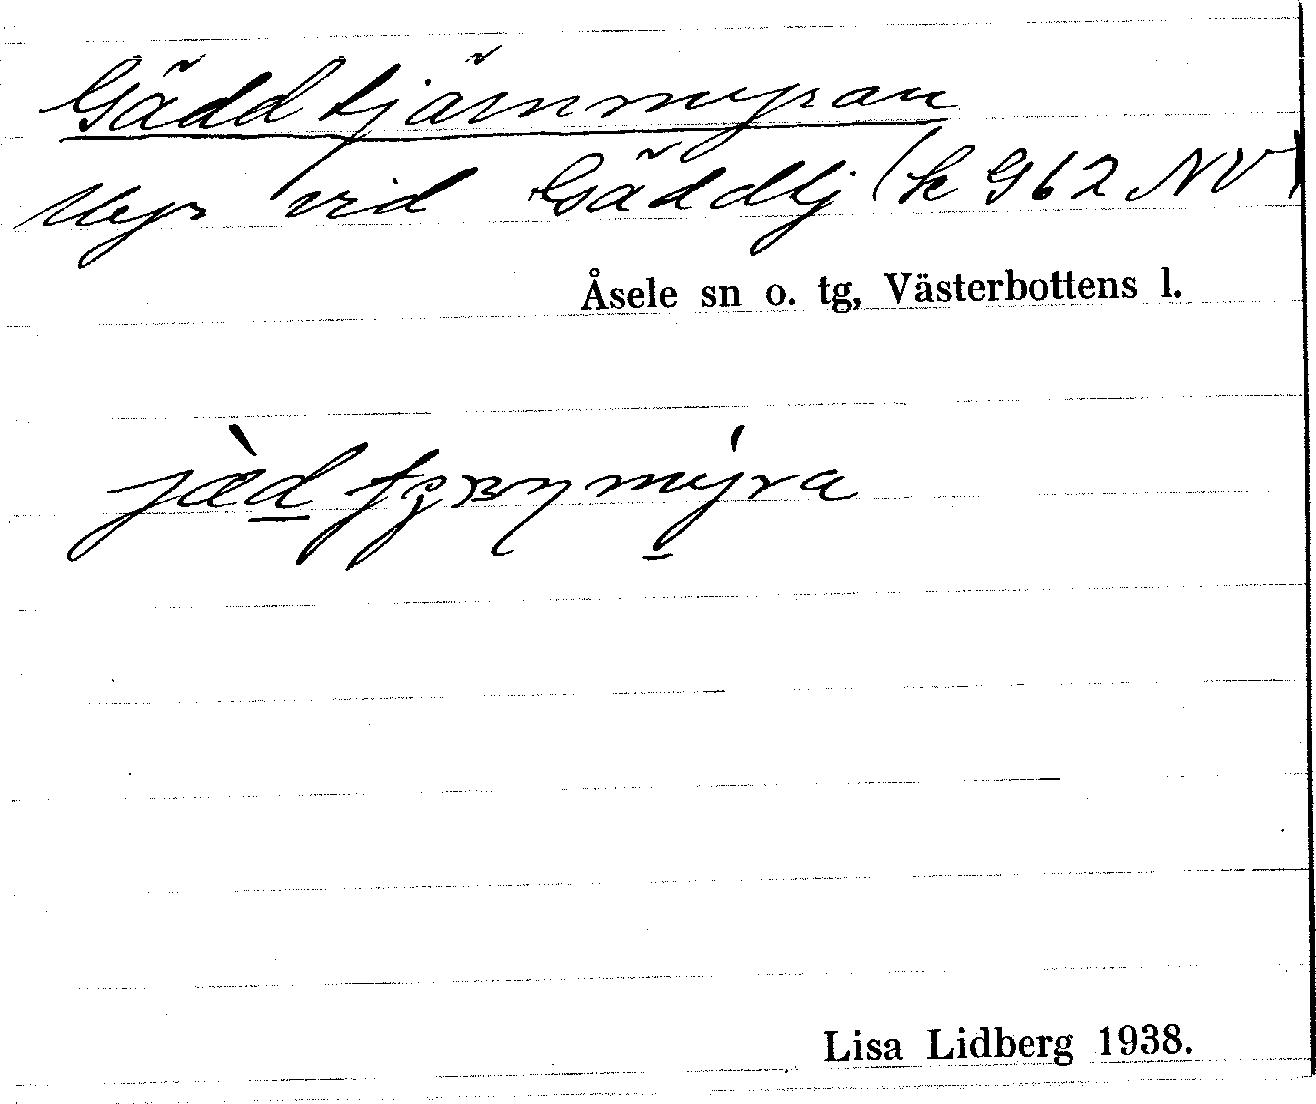 Gäddtjärnmyran
Myr vid Gäddtj (k G62 NV)
Åsele sn o. tg, Västerbottens l.
Lisa Lidberg 1938.